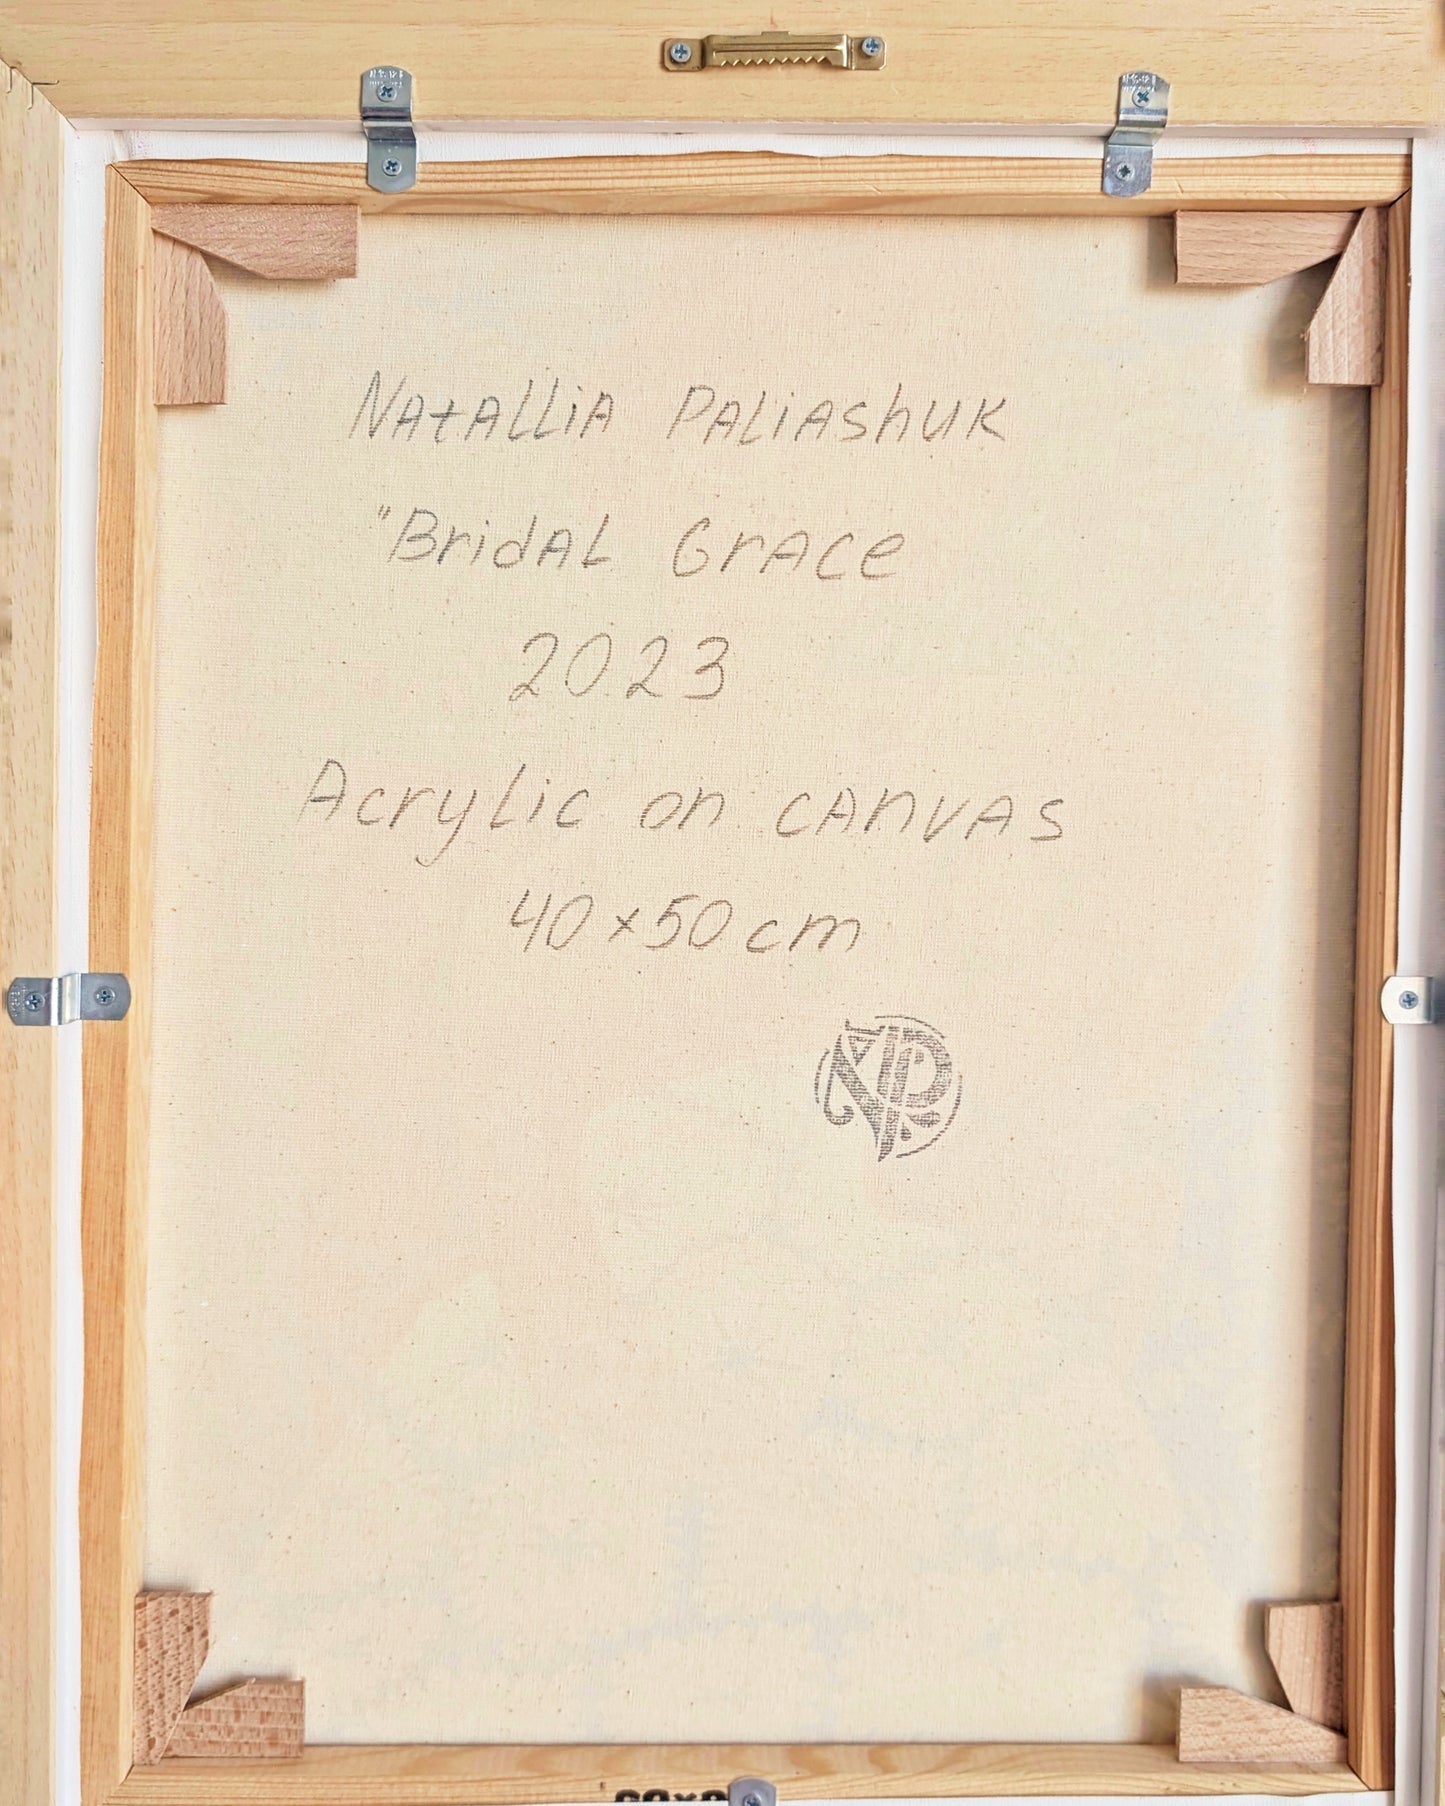 NAtALLiA PALiAshUK
"BridAL GrAce
2023
AcryLic on cAnvAs
40×50 cm
NP